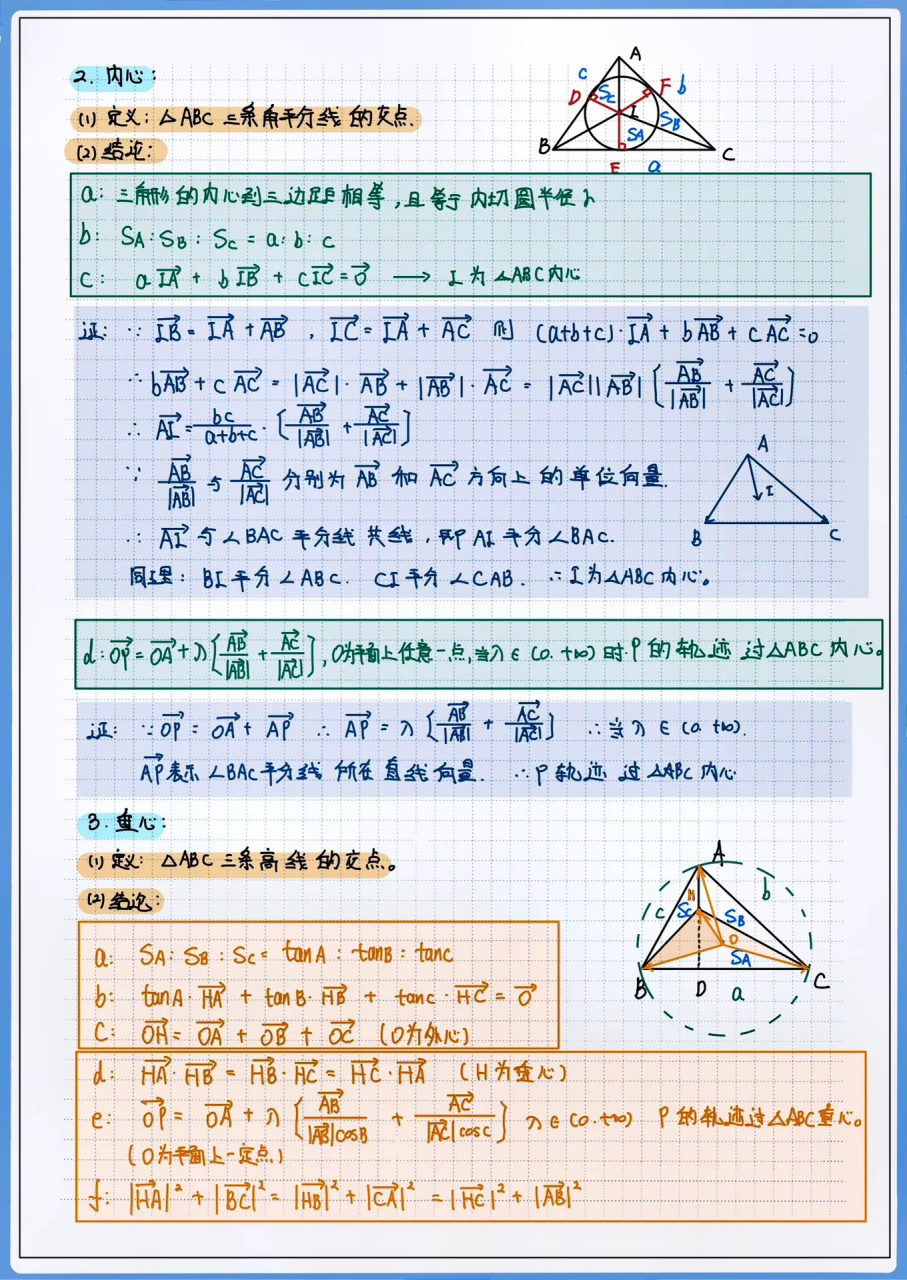 2. 内心:
(1) 定义: △ABC 三条角平分线 的交点.
(2) 结论:
A
c
D
Sc
F
b
I
SB
SA
B
E
a
C
a: 三角形的内心到三边距相等,且等于内切圆半径r
b: SA:SB:Sc = a:b:c
c: aIA⃗ + bIB⃗ + cIC⃗ = 0⃗ ⟶ I 为 △ABC内心
证: ∵ IB⃗ = IA⃗ + AB⃗ , IC⃗ = IA⃗ + AC⃗ 则 (a+b+c)·IA⃗ + bAB⃗ + cAC⃗ = 0
∴ bAB⃗ + cAC⃗ = |AC⃗|·AB⃗ + |AB⃗|·AC⃗ = |AC⃗||AB⃗| (AB⃗/|AB⃗| + AC⃗/|AC⃗|)
∴ AI⃗ = bc/(a+b+c) · (AB⃗/|AB⃗| + AC⃗/|AC⃗|)
∵ AB⃗/|AB⃗| 与 AC⃗/|AC⃗| 分别为 AB⃗ 和 AC⃗ 方向上的单位向量.
∴ AI⃗ 与∠BAC 平分线 共线, 即 AI 平分∠BAC.
同理: BI平分∠ABC. CI平分∠CAB. ∴I为△ABC内心。
A
I
B
C
d: OP⃗ = OA⃗ + λ(AB⃗/|AB⃗| + AC⃗/|AC⃗|), O为平面上任意一点,当λ∈(0.+∞) 时.P的轨迹 过△ABC 内心。
证: ∵OP⃗ = OA⃗ + AP⃗ ∴ AP⃗ = λ(AB⃗/|AB⃗| + AC⃗/|AC⃗|) ∴当 λ∈(0 +∞).
AP⃗表示∠BAC平分线 所在直线向量. ∴P轨迹 过△ABC内心
3. 垂心:
(1) 定义: △ABC 三条高线的交点。
(2) 结论:
A
b
c
H
Sc
SB
O
SA
B
D
a
C
a: SA:SB:Sc = tanA : tanB : tanc
b: tanA·HA⃗ + tanB·HB⃗ + tanc·HC⃗ = 0⃗
C: OH⃗ = OA⃗ + OB⃗ + OC⃗ (O为外心)
d: HA⃗·HB⃗ = HB⃗·HC⃗ = HC⃗·HA⃗ (H为垂心)
e: OP⃗ = OA⃗ + λ(AB⃗/|AB⃗|cosB + AC⃗/|AC⃗|cosc) λ∈(0.+∞) P的轨迹过△ABC垂心。
(O为平面上一定点)
f: |HA⃗|² + |BC⃗|² = |HB⃗|² + |CA⃗|² = |HC⃗|² + |AB⃗|²